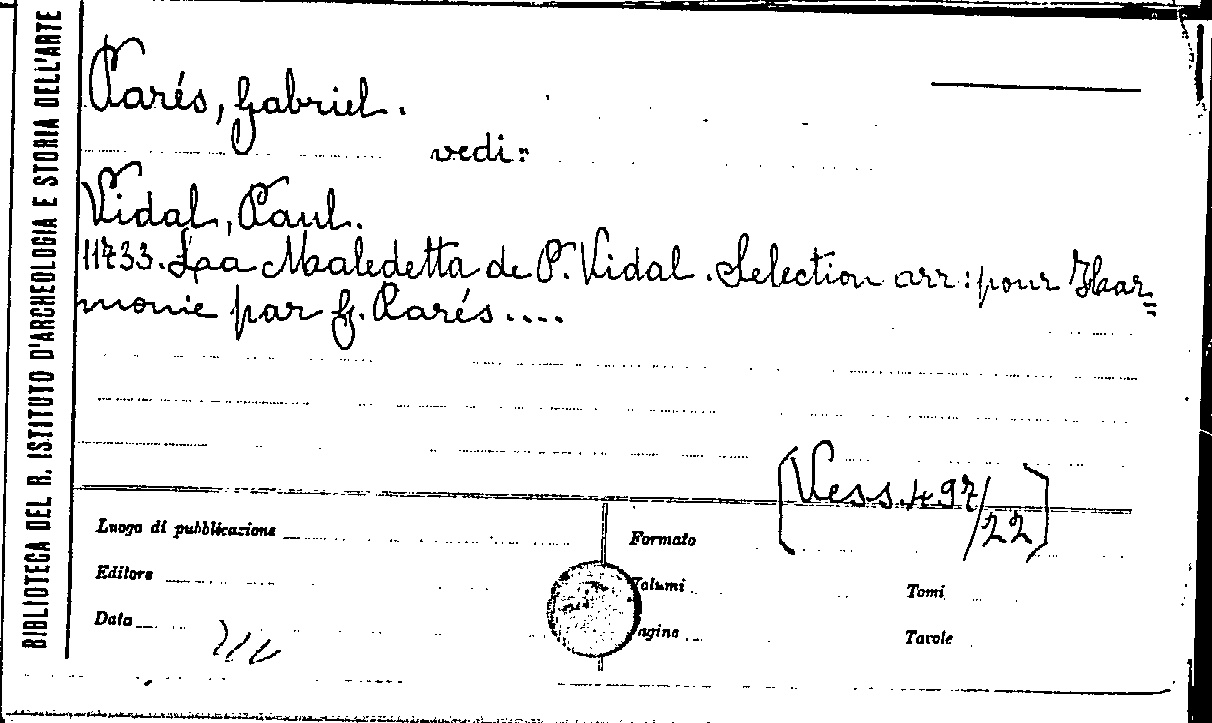 BIBLIOTECA DEL R. ISTITUTO D'ARCHEOLOGIA E STORIA DELL'ARTE
Parés, Gabriel.
vedi:
Vidal, Paul.
11733. La Maledetta de P. Vidal. Selection arr: pour Har=
monie par G. Parés....
[Vess. 497/22]
Luogo di pubblicazione
Formato
Editore
Volumi
Tomi
Data
Pagine
Tavole